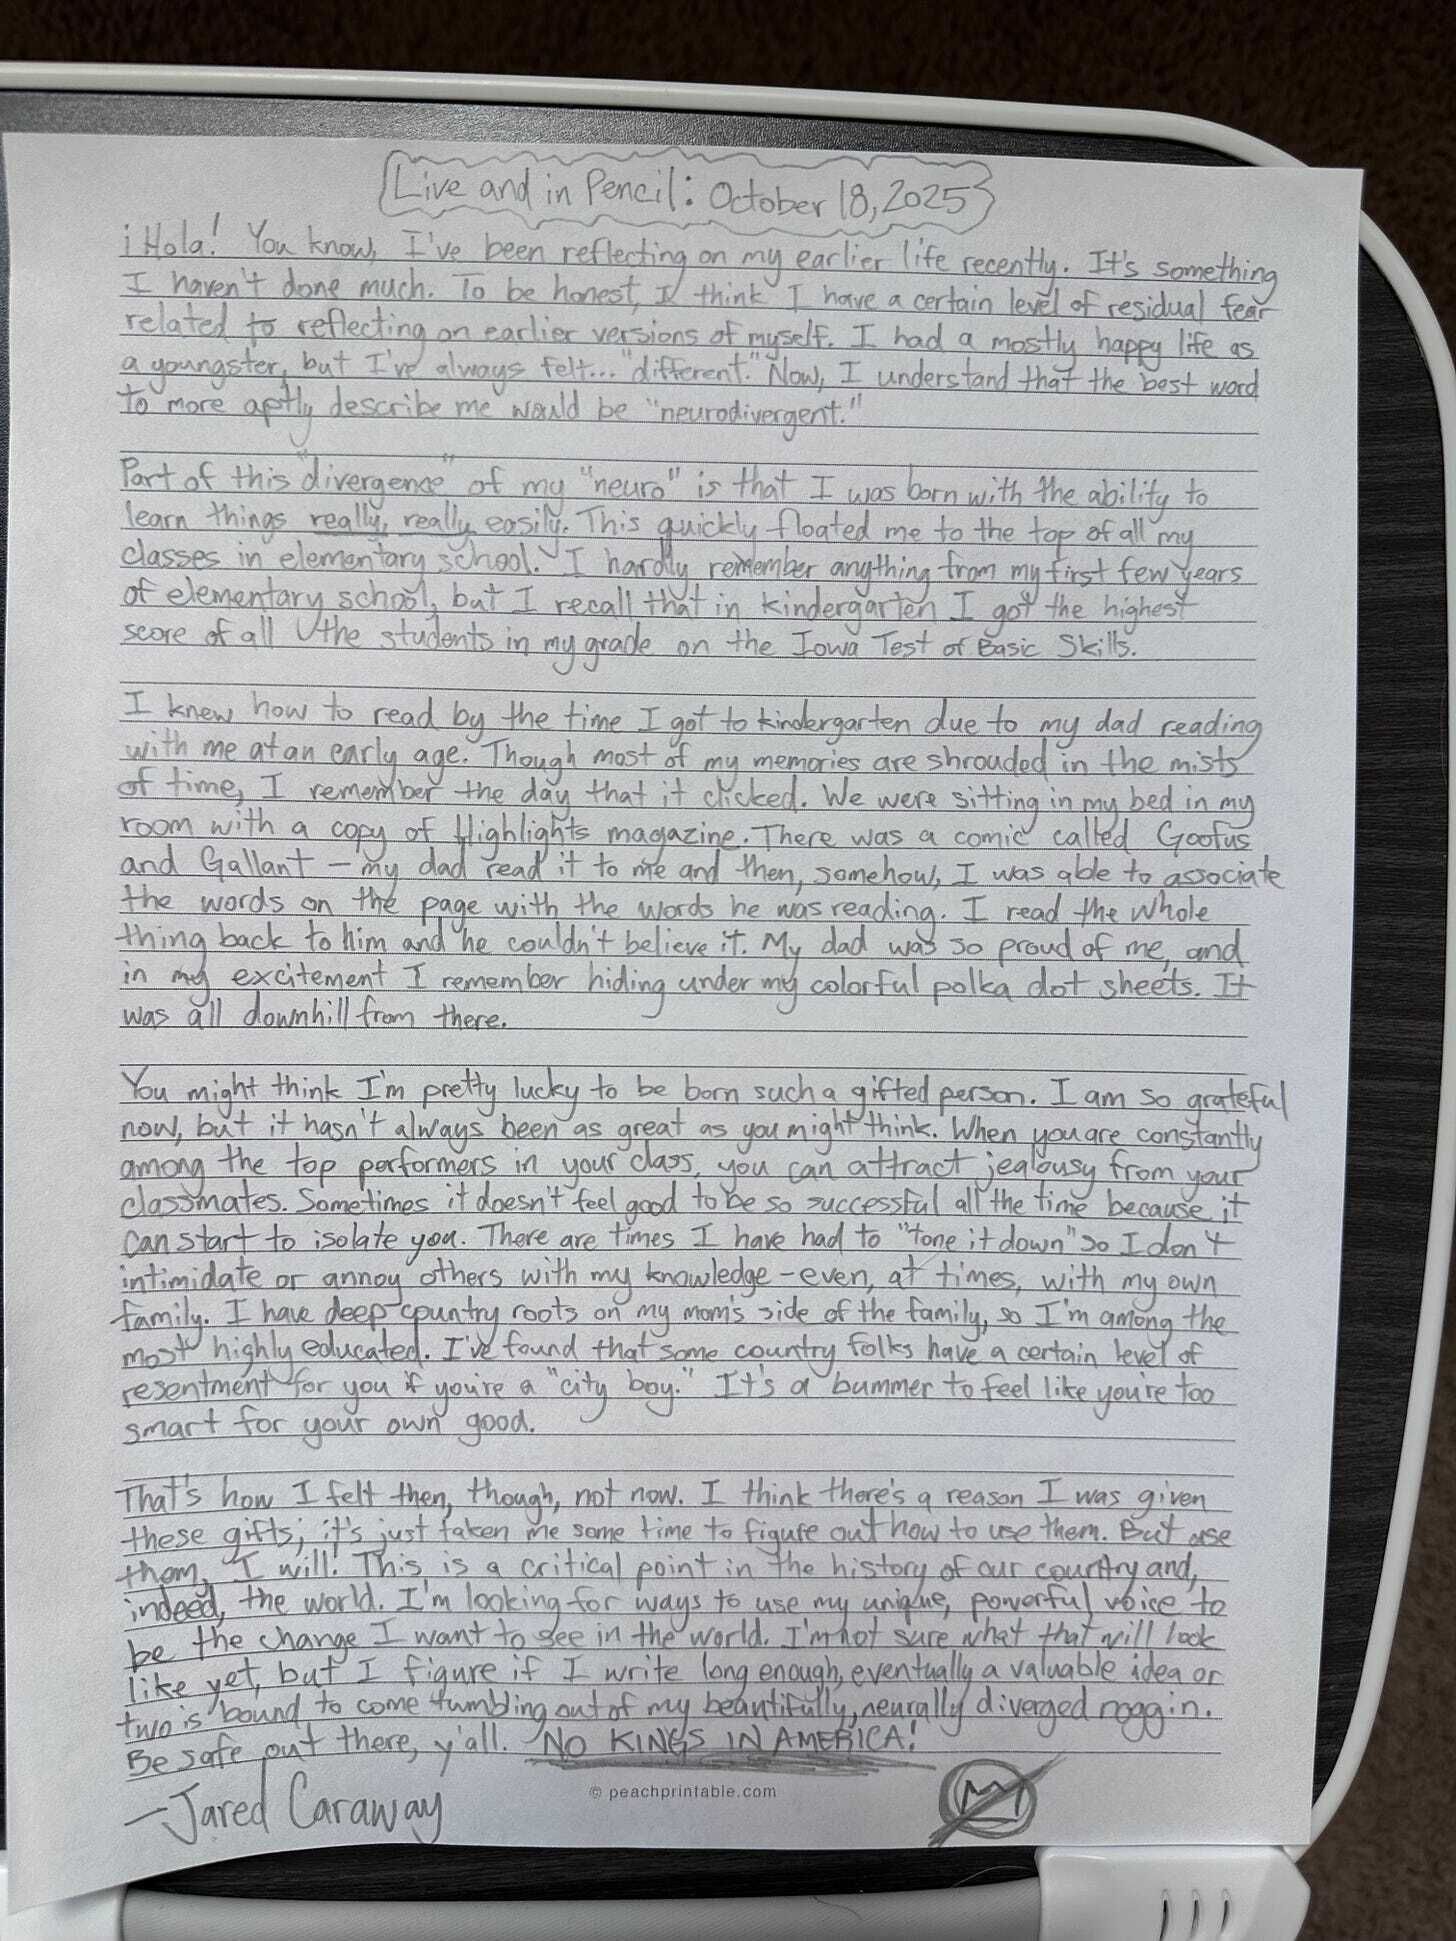 Live and in Pencil: October 18, 2025
¡Hola! You know, I've been reflecting on my earlier life recently. It's something
I haven't done much. To be honest, I think I have a certain level of residual fear
related to reflecting on earlier versions of myself. I had a mostly happy life as
a youngster, but I've always felt... "different." Now, I understand that the best word
to more aptly describe me would be "neurodivergent."
Part of this "divergence" of my "neuro" is that I was born with the ability to
learn things really, really easily. This quickly floated me to the top of all my
classes in elementary school. I hardly remember anything from my first few years
of elementary school, but I recall that in kindergarten I got the highest
score of all the students in my grade on the Iowa Test of Basic Skills.
I knew how to read by the time I got to kindergarten due to my dad reading
with me at an early age. Though most of my memories are shrouded in the mists
of time, I remember the day that it clicked. We were sitting in my bed in my
room with a copy of Highlights magazine. There was a comic called Goofus
and Gallant — my dad read it to me and then, somehow, I was able to associate
the words on the page with the words he was reading. I read the whole
thing back to him and he couldn't believe it. My dad was so proud of me, and
in my excitement I remember hiding under my colorful polka dot sheets. It
was all downhill from there.
You might think I'm pretty lucky to be born such a gifted person. I am so grateful
now, but it hasn't always been as great as you might think. When you are constantly
among the top performers in your class, you can attract jealousy from your
classmates. Sometimes it doesn't feel good to be so successful all the time because it
can start to isolate you. There are times I have had to "tone it down" so I don't
intimidate or annoy others with my knowledge - even, at times, with my own
family. I have deep country roots on my mom's side of the family, so I'm among the
most highly educated. I've found that some country folks have a certain level of
resentment for you if you're a "city boy." It's a bummer to feel like you're too
smart for your own good.
That's how I felt then, though, not now. I think there's a reason I was given
these gifts; it's just taken me some time to figure out how to use them. But use
them, I will! This is a critical point in the history of our country and,
indeed, the world. I'm looking for ways to use my unique, powerful voice to
be the change I want to see in the world. I'm not sure what that will look
like yet, but I figure if I write long enough, eventually a valuable idea or
two is bound to come tumbling out of my beautifully, neurally diverged noggin.
Be safe out there, y'all. NO KINGS IN AMERICA!
© peachprintable.com
—Jared Caraway